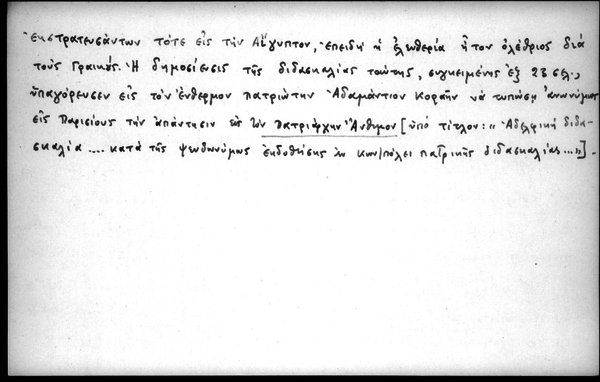 ἐκστρατευσάντων τότε εἰς τὴν Αἴγυπτον, ἐπειδὴ ἡ ἐλευθερία ἦτον ὀλέθριος διά
τοὺς Γραικούς. Ἡ δημοσίευσις τῆς διδασκαλίας ταύτης, συγκειμένης ἐξ 23 σελ.,
ὑπαγόρευσεν εἰς τὸν ἔνθερμον πατριώτην Ἀδαμάντιον Κοραῆν νὰ τυπώσῃ ἀνωνύμως
εἰς Παρισίους τὴν ἀπάντησιν εἰς τὸν Πατριάρχην Ἄνθιμον [ὑπό τίτλον: "Ἀδελφική διδα-
σκαλία .... κατά τῆς ψευδωνύμως ἐκδοθείσης ἐν Κων/πόλει πατρικῆς διδασκαλίας..."].